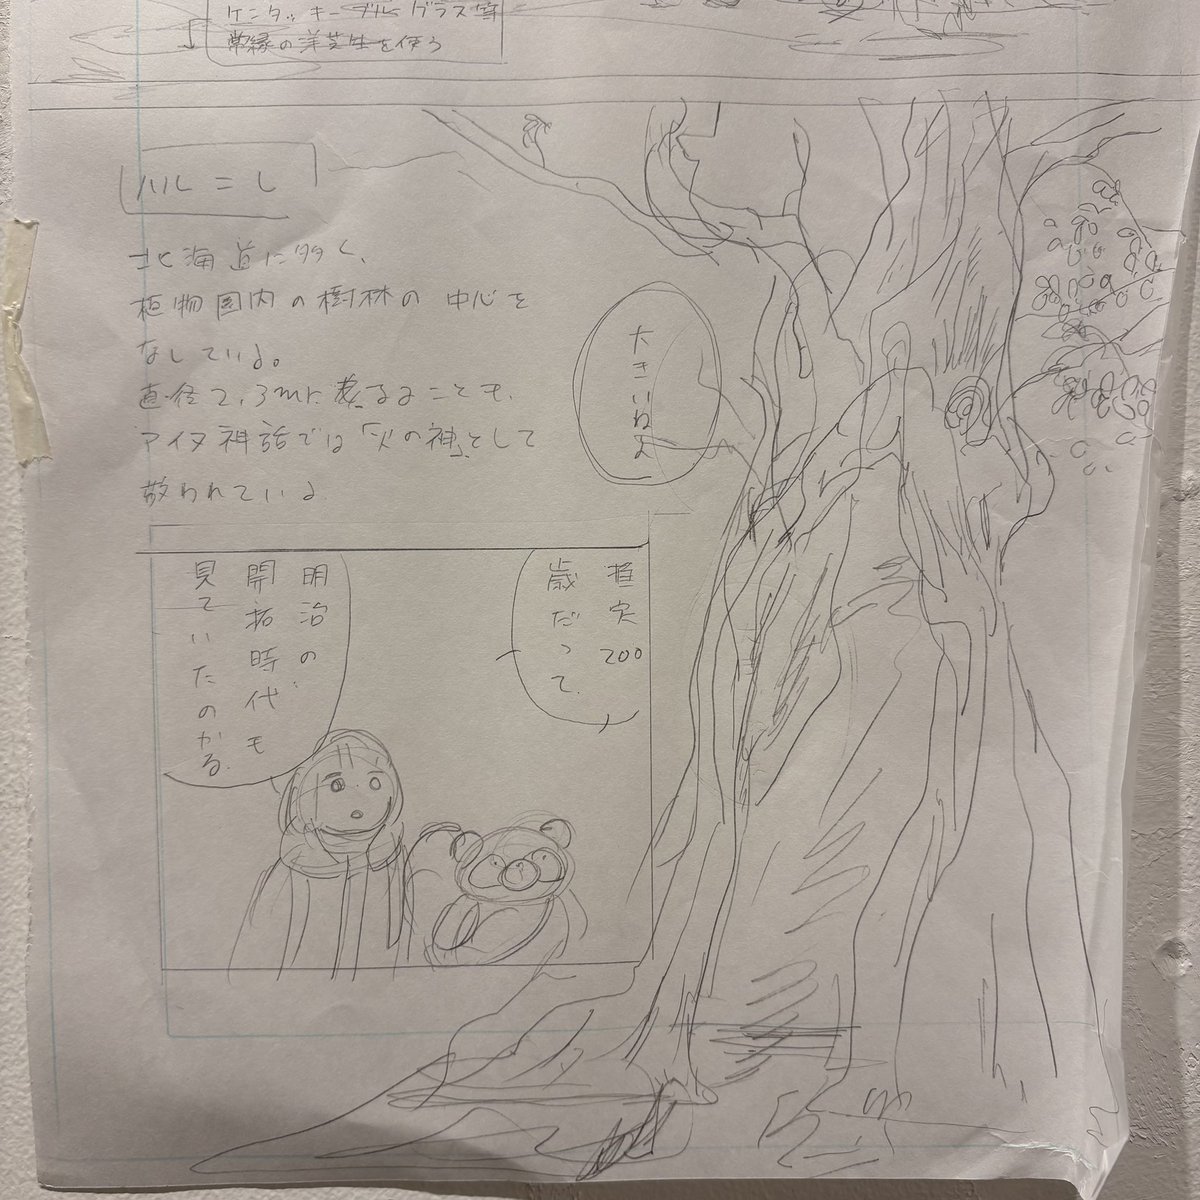 ケンタッキーブルーグラス等
常緑の洋芝生を使う
ハルニレ
北海道に多く、
植物園内の樹林の中心を
なしている。
直径2,3mに達することも。
アイヌ神話では「火の神」として
敬われている。
大きいねえ
推定200
歳だって
明治の
開拓時代も
見ていたのかな